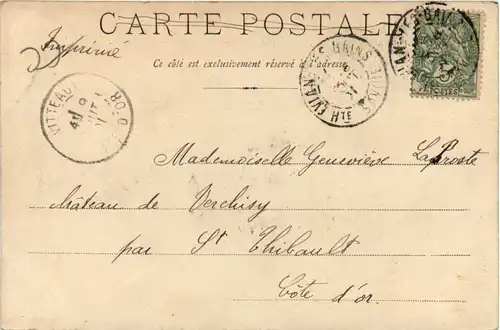 CARTE POSTALE
Imprimé
Ce côté est exclusivement réservé à l'adresse
EVIAN-LES-BAINS
HTE
VITTEAUX
Mademoiselle Geneviève Laproste
château de Verchisy
par St Thibault
Côte d'or.